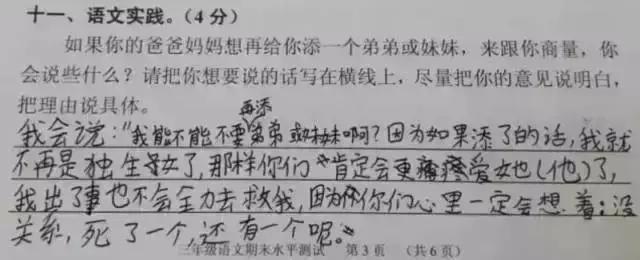 十一、语文实践。(4分)
如果你的爸爸妈妈想再给你添一个弟弟或妹妹，来跟你商量，你
会说些什么？请把你想要说的话写在横线上，尽量把你的意见说明白，
把理由说具体。
再添
我会说："我能不能不要弟弟或妹妹啊？因为如果添了的话，我就
不再是独生女了，那样你们肯定会更疼爱她(他)了，
我出了事也不会全力去救我，因为你们心里一定会想着：没
关系，死了一个，还有一个呢。"
三年级语文期末水平测试 第3页 (共6页)